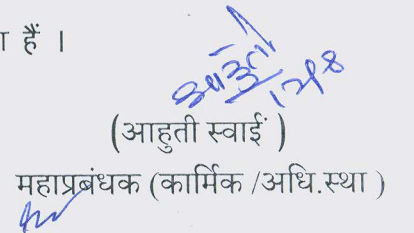 ा हैं ।
आहुती
(आहुती स्वाईं )
महाप्रबंधक (कार्मिक /अधि.स्था )